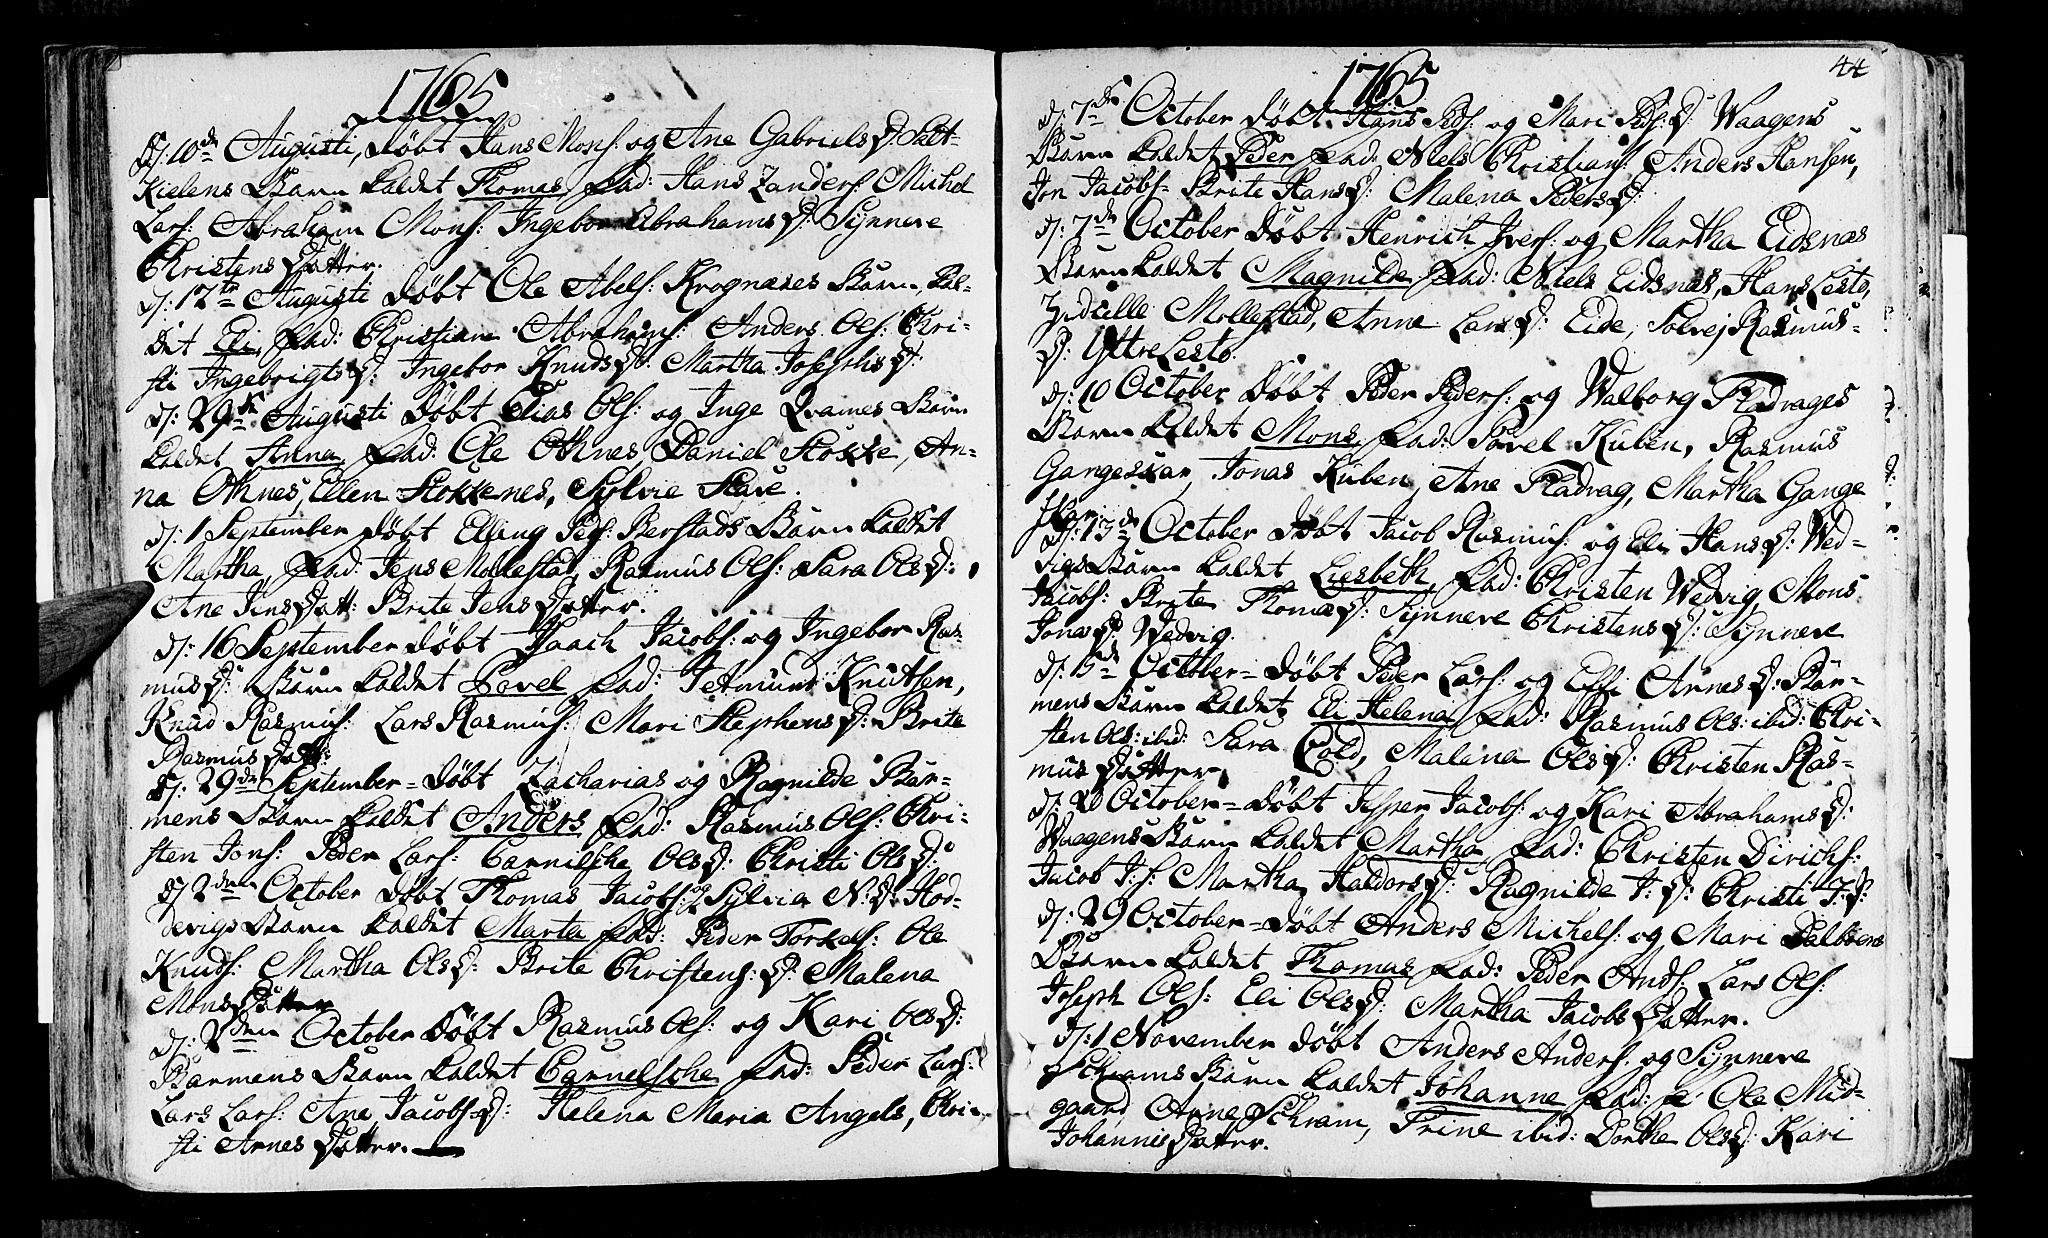 1765
D: 10de Augusti, döbt Hans Mons: og Ane Gabriels D: Salt-
Kielens Barn kaldet Thomas, fad: Hans Zanders: Michel
Lars: Abraham Mons: Ingebor Abrahams D: Synneve
Christens Datter.
D: 17te Augusti döbt Ole Abels: Krognæses Barn, kal-
det Eli, fad: Christian Abrahams: Anders Ols: Chri-
sti Ingebrigts D: Ingebor Knuds D: Martha Josephs D:
D: 29de Augusti döbt Elias Ols: og Inge Qvames Barn
kaldet Anna, fad: Ole Othnes, Daniel Stokke, An-
na Othnes, Ellen Stokkenes, Sylvie
D: 1 September döbt Elling Ped: Berstads Barn kaldet
Martha, fad: Jens Mollestad, Rasmus Ols: Sara Ols D:
Ane Jens Datt: Brite Jens Datter.
D: 16 September döbt Isaach Jacobs: og Ingebor Ras-
mus D: Barn kaldet Povel fad: Knutsen,
Knud Rasmus: Lars Rasmus: Mari Stephens D: Brite
Rasmus Datt:
D: 29de September döbt Zacharias og Ragnilde Bar-
mens Barn kaldet Anders fad: Rasmus Ols: Chri-
sten Jons: Peder Lars: Carnilsche Ols D: Christi Ols D:
D: 2den October döbt Thomas Jacobs: og Sylvia N: D: Hod-
devigs Barn kaldet Marta fad: Peder Torkels: Ole
Knuds: Martha Ols D: Brite Christens: D: Malena
Mons Datter
D: 2den October döbt Rasmus Ols: og Kari Ols D:
Barmens Barn kaldet Carnelsche fad: Peder Lars:
Lars Lars: Ane Jacobs D: Helena Maria Angels, Chri-
sti Arnes Datter.
1765
44
D: 7de October döbt Hans Peds: og Mari Peds: D: Waagens
Barn kaldet Peder fad: Niels Christians: Anders Hansen,
Jon Jacobs- Brite Hans D: Malena Peders D:
D: 7de October döbt Henrich Ivers: og Martha Eidsnæs
Barn kaldet Magnilde fad: Niels Eidsnæs, Hans Lestö,
Zidselle Mollestad, Anne Lars D: Eide, Solvej Rasmus-
D: Yttre Lestö.
D: 10 October döbt Peder Peders: og Walborg Fladvages
Barn kaldet Mons, fad: Povel Kuben, Rasmus
Gangeskar, Jonas Kuben, Ane Fladvag, Martha Gange
skar.
D: 13de October döbt Jacob Rasmus: og Eli Hans D: Wed-
vigs Barn kaldet Liesbeth, fad: Christen Wedvig, Mons
Jacobs: Brite Thomæ D: Synneve Christens D: Synneve
Jonas D: Wedvig.
D: 15de October döbt Peder Lars: og Effi Arnes D: Bar-
mens Barn kaldet Eli Helena, fad: Rasmus Ols: ibid: Chri-
sten Ols: ibid: Sara Cold, Malena Ols D: Christen Ras-
mus Datter.
D: 20 October döbt Jesper Jacobs: og Kari Abrahams D:
Waagens Barn kaldet Martha fad: Christen Dirichs:
Jacob J: s: Martha Haldors D: Ragnilde J: D: Christi J: D:
D: 29 October döbt Anders Michels: og Mari Dalbøens
Barn kaldet Thomas fad: Peder Ands: Lars Ols:
Joseph Ols: Eli Ols D: Martha Jacobs Datter.
D: 1 November döbt Anders Anders: og Synneve
Schrams Barn kaldet Johanne fad: Ole Mid-
gaard, Anne Schram, Trine ibid: Dorthe Ols D: Kari
Johannis Datter.